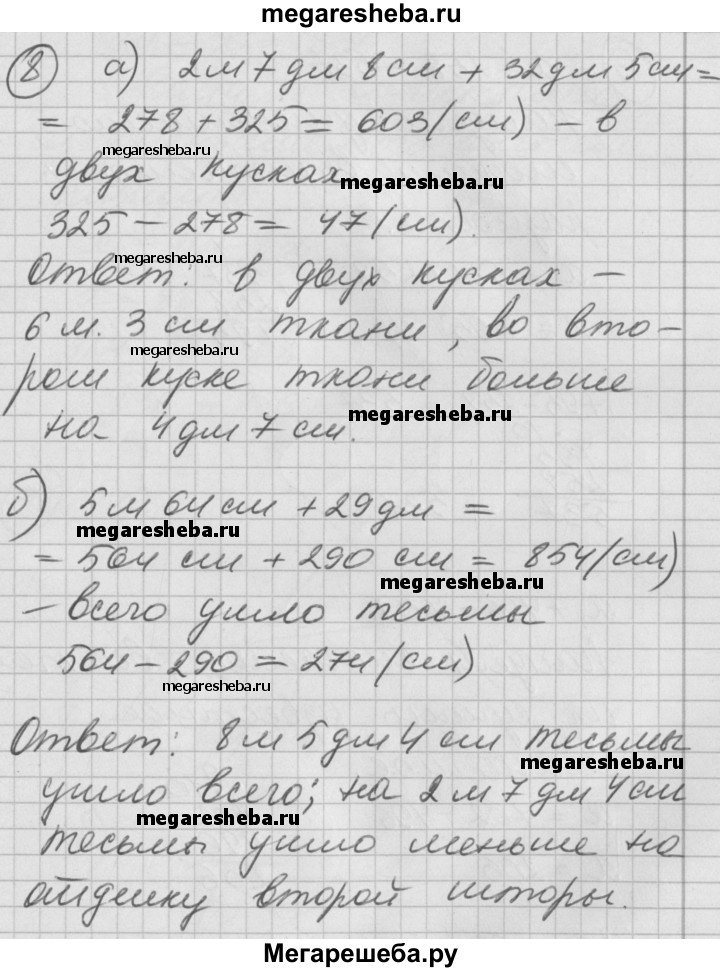 megaresheba.ru
8 а) 2м 7 дм 8 см + 32 дм 5 см =
= 278 + 325 = 603 (см) – в
megaresheba.ru
двух кусках
megaresheba.ru
325 – 278 = 47 (см).
megaresheba.ru
Ответ: в двух кусках –
6 м. 3 см ткани, во вто-
megaresheba.ru
ром куске ткани больше
megaresheba.ru
на 4 дм 7 см.
б) 5 м 64 см + 29 дм =
megaresheba.ru
= 564 см + 290 см = 854 (см)
megaresheba.ru
– всего ушло тесьмы
564 – 290 = 274 (см)
megaresheba.ru
Ответ: 8 м 5 дм 4 см тесьмы
megaresheba.ru
ушло всего; на 2 м 7 дм 4 см
megaresheba.ru
тесьмы ушло меньше на
отделку второй шторы.
Мегарешеба.ру